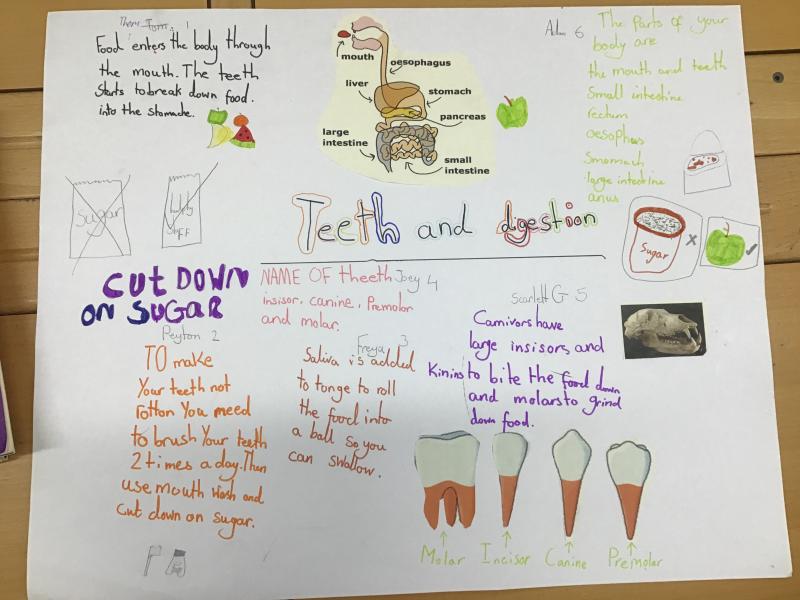 Food enters the body through
the mouth. The teeth
starts to break down food.
into the stomache.
mouth
oesophagus
liver
stomach
pancreas
large
intestine
small
intestine
6
The parts of your
body are
the mouth and teeth
Small intestine
rectum
oesophus
Smomach
large intestine
anus
Sugar
Sugar
Teeth and digestion
CUt DOWN
ON SUGAR
NAME OF theeth Joey 4
insisor, canine, Premolor
and molar.
Peyton 2
TO make
Your teeth not
rotton You need
to brush Your teeth
2 times a day. Then
use mouth Wash and
Cut down on sugar.
Freya 3
Saliva is added
to tonge to roll
the food into
a ball so you
can swallow.
Scarlett G 5
Carnivors have
large insisors, and
Kinins to bite the food down
and molars to grind
down food.
Molar
Incisor
Canine
Premolar